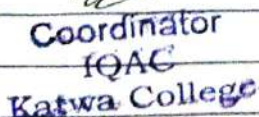 Coordinator
IQAC
Katwa College